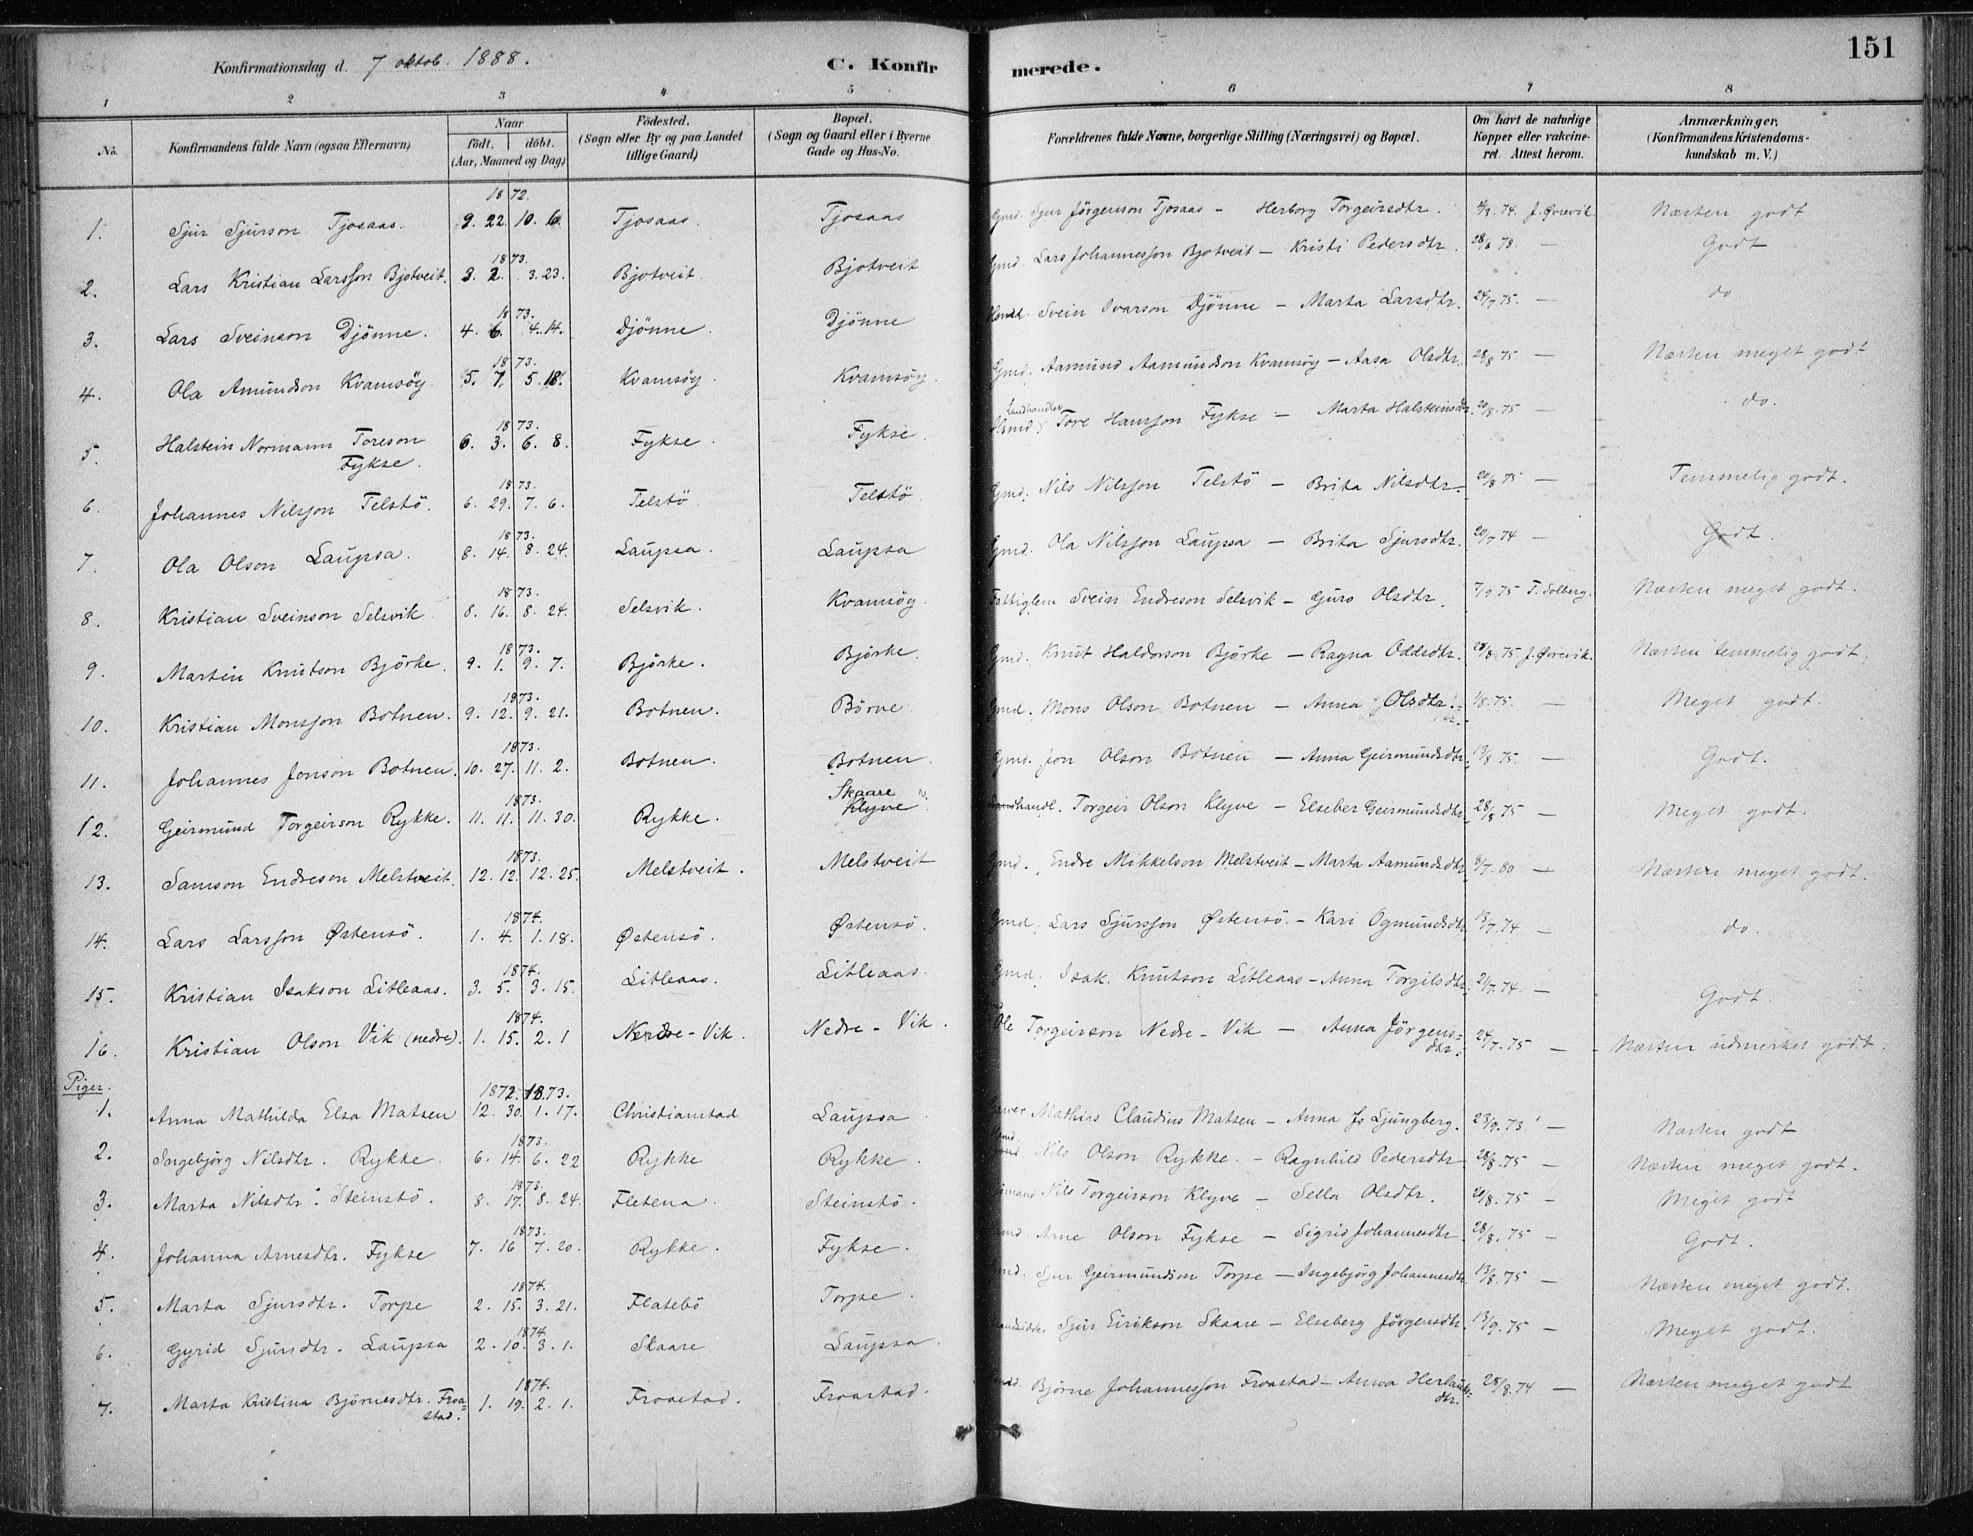 151
Konfirmationsdag d. 7 oktob. 1888. C. Konfirmerede.
1 2 3 4 5 6 7 8
No. Konfirmandens fulde Navn (ogsaa Efternavn) Naar født. døbt. (Aar, Maaned og Dag) Fødested. (Sogn eller By og paa Landet tillige Gaard) Bopæl. (Sogn og Gaard eller i Byerne Gade og Hus-No. Forældrenes fulde Navne, borgerlige Stilling (Næringsvei) og Bopæl. Om havt de naturlige Kopper eller vakcineret. Attest herom. Anmærkninger. (Konfirmandens Kristendomskundskab m. V.)
1872.
1. Sjur Sjurson Tjosaas. 9. 22. 10. 6. Tjosaas. Tjosaas Gmd. Sjur Jörgenson Tjosaas - Herborg Torgeirsdtr. 74. J. Øvrevik. Næsten godt
1873.
2. Lars Kristian Larsson Bjotveit. 3. 2. 3. 23. Bjotveit. Bjotveit Gmd. Lars Johannesson Bjotveit - Kristi Pedersdtr. — Godt
1873.
3. Lars Sveinson Djönne. 4. 6. 4. 14. Djönne. Djönne Svein Ivarson Djönne - Marta Larsdtr. 24/7 75. — do
1873.
4. Ola Amundson Kvamsöy. 5. 7. 5. 18. Kvamsöy. Kvamsöy. Gmd. Aamund Aamundson Kvamsöy - Aasa Olsdtr. 28/8 75 — Næsten meget godt
1873.
5. Halstein Normann Toreson Fykse. 6. 3. 6. 8. Fykse. Fykse. Landhandler Tore Hansson Fykse - Marta Halsteinsdtr. 20/8. 75 — do.
1873.
6. Johannes Nilsson Telstö. 6. 29. 7. 6. Telstö. Telstö. Gmd. Nils Nilsson Telstö - Brita Nilsdtr. 20/8 75 — Temmelig godt.
1873.
7. Ola Olson Laupsa. 8. 14. 8. 24. Laupsa. Laupsa Gmd. Ola Nilsson Laupsa - Brita Sjursdtr. 20/7 74 — Godt.
1873.
8. Kristian Sveinson Selsvik. 8. 16. 8. 24. Selsvik. Kvamsöy. Fattiglem Svein Endreson Selsvik - Guro Olsdtr. 7/9 75 T. Solberg. Næsten meget godt.
1873.
9. Martin Knutson Björke. 9. 1. 9. 7. Björke. Björke. Gmd. Knut Haldorson Björke - Ragna Oddsdtr. 28/8. 75 J. Øvrevik. Næsten temmelig godt.
1873.
10. Kristian Monsson Botnen. 9. 12. 9. 21. Botnen. Börve Gmd. Mons Olson Botnen - Anna Olsdtr. 1/8. 75. — Meget godt.
1873.
11. Johannes Jonson Botnen. 10. 27. 11. 2. Botnen. Botnen. Gmd. Jon Olson Botnen - Anna Geirmundsdtr. 13/8. 75. — Godt.
1873.
12. Geirmund Torgeirson Rykke. 11. 11. 11. 30. Rykke. Skaare Klyve Landhandl. Torgeir Olson Klyve - Elseber Geirmundsdtr. 28/8 75 — Meget godt.
1873.
13. Samson Endreson Melstveit. 12. 12. 12. 25. Melstveit. Melstveit Gmd. Endre Mikkelson Melstveit - Marta Aamundsdtr. 8/7. 80 — Næsten meget godt.
1874.
14. Lars Larsson Østensö. 1. 4. 1. 18. Østensö. Østensö. Gmd. Lars Sjursson Østensö. - Kari Ogmundsdtr. 13/7. 74 — do.
1874.
15. Kristian Isakson Litleaas. 3. 5. 3. 15. Litleaas. Litleaas. Gmd. Isak Knutson Litleaas - Anna Torgilsdtr. 21/7. 74. — Godt
1874.
16. Kristian Olson Vik (nedre). 1. 15. 2. 1 Nedre-Vik. Nedre-Vik. Ole Torgeirson Nedre-Vik - Anna Jörgensdtr. 24/7. 75 — Næsten udmerket godt.
Piger.
1872. 1873.
1. Anna Mathilda Elsa Matsen 12. 30. 1. 17. Christianstad Laupsa Mathias Claudius Matsen - Anna Ljungberg. 23/9. 73. — Næsten godt
1873.
2. Ingebjörg Nilsdtr. Rykke. 6. 14. 6. 22 Rykke Rykke. Nils Olson Rykke. - Ragnhild Pedersdtr. 28/8. 75 — Næsten meget godt.
1873.
3. Marta Nilsdtr. Steinstö. 8. 17. 8. 24. Fletena. Steinstö. Nils Torgeirson Klyve - Sella Olsdtr. 20/8. 75 — Meget godt
1873.
4. Johanna Arnesdtr. Fykse 7. 16 7. 20. Rykke. Fykse. Arne Olson Fykse - Sigrid Johannesdtr. 28/8. 75 — Godt.
1874.
5. Marta Sjursdtr. Torpe 2. 15. 3. 21. Flatebö Torpe. Sjur Geirmundson Torpe - Ingebjörg Johannesdtr. 13/8. 75 — Næsten meget godt.
1874.
6. Gyrid Sjursdtr. Laupsa 2. 10. 3. 1. Skaare Laupsa. Sjur Eirikson Skaare - Elseberg Jörgensdtr. 13/9. 75 — Meget godt.
1874.
7. Marta Kristina Björnesdtr. Froastad. 1. 19. 2. 1. Froastad. Froastad. Björne Johannesson Froastad - Anna Herlaugsdtr. 28/8. 74 — Næsten meget godt